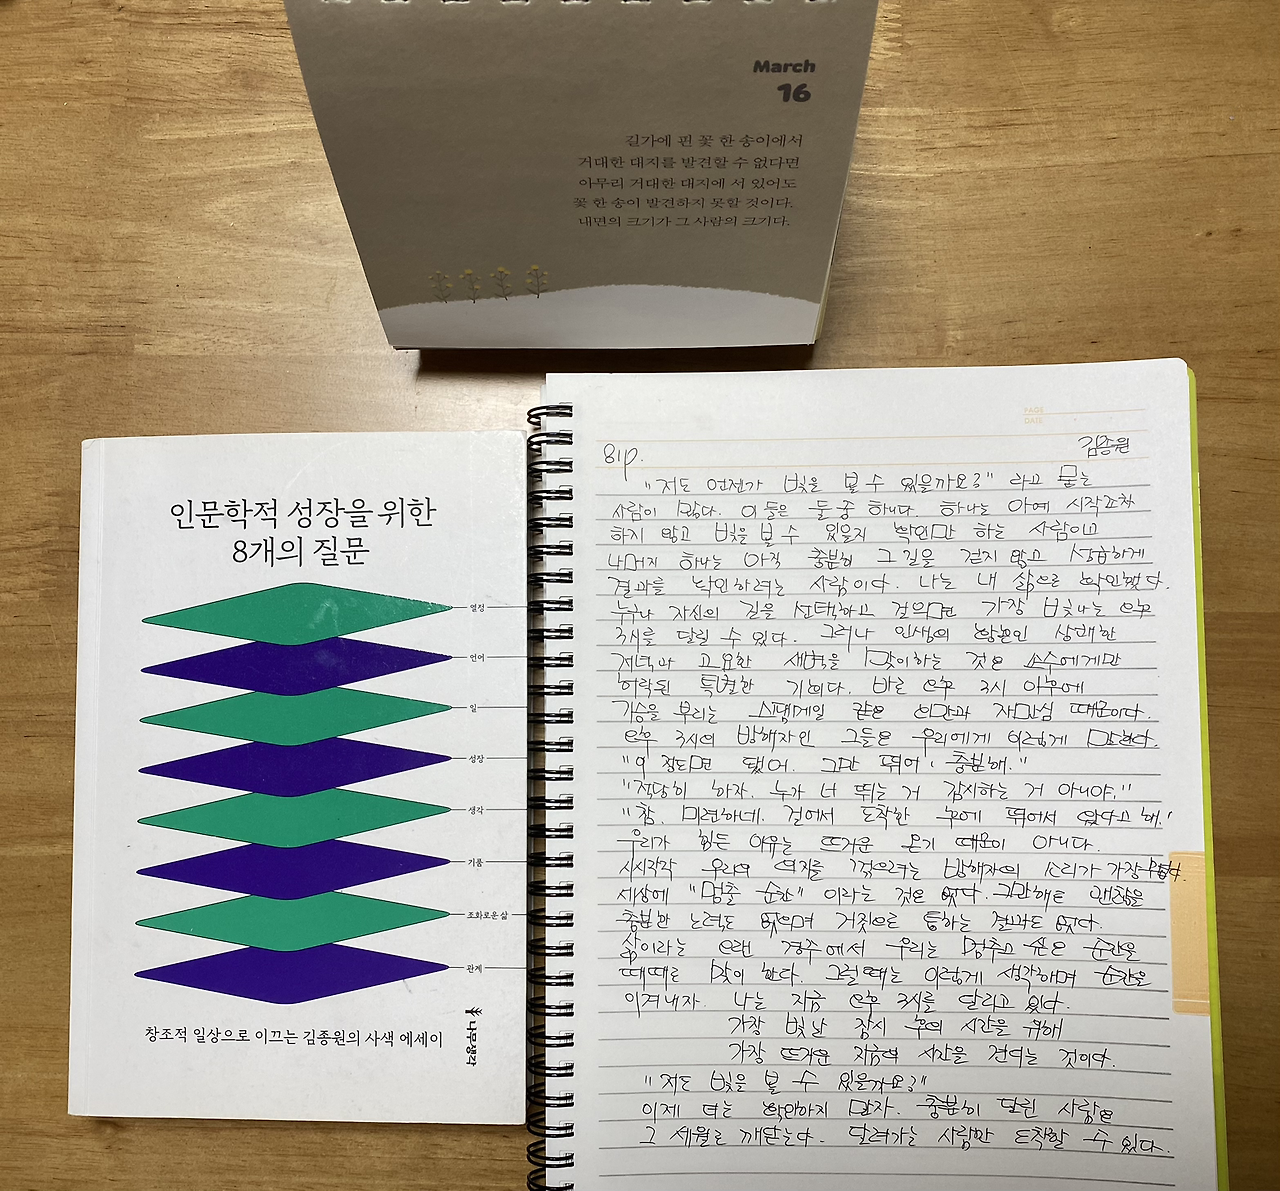 March
16
길가에 핀 꽃 한 송이에서
거대한 대지를 발견할 수 없다면
아무리 거대한 대지에 서 있어도
꽃 한 송이 발견하지 못할 것이다.
내면의 크기가 그 사람의 크기다.
인문학적 성장을 위한
8개의 질문
열정
언어
일
성장
생각
기품
조화로운 삶
관계
창조적 일상으로 이끄는 김종원의 사색 에세이
나무생각
PAGE
DATE
81p.
김종원
"저도 언젠가 빛을 볼 수 있을까요?" 라고 묻는
사람이 많다. 이들은 둘 중 하나다. 하나는 아예 시작조차
하지 않고 빛을 볼 수 있을지 확인만 하는 사람이고
나머지 하나는 아직 충분히 그 길을 걷지 않고 성급하게
결과를 확인하려는 사람이다. 나는 내 삶으로 확인했다.
누구나 자신의 길을 선택하고 걸으면 가장 빛나는 오후
3시를 달릴 수 있다. 그러나 인생의 황혼인 상쾌한
저녁과 고요한 새벽을 맞이하는 것은 소수에게만
허락된 특별한 기회다. 바로 오후 3시 이후에
기승을 부리는 스팸메일 같은 오만과 자만심 때문이다.
오후 3시의 방해자인 그들은 우리에게 이렇게 말한다.
"이 정도면 됐어. 그만 뛰어, 충분해."
"적당히 하자. 누가 너 뛰는 거 감시하는 거 아니야."
"참, 미련하네. 걸어서 도착한 후에 뛰어서 왔다고 해."
우리가 힘든 이유는 뜨거운 온기 때문이 아니다.
시시각각 우리의 의지를 꺾으려는 방해자의 소리가 가장 무섭다.
세상에 "멈출 순간" 이라는 것은 없다. 그만해도 괜찮을
충분한 노력도 없으며 거짓으로 통하는 결과도 없다.
삶이라는 오랜 경주에서 우리는 멈추고 싶은 순간을
때때로 맞이 한다. 그럴 때는 이렇게 생각하며 순간을
이겨내자. 나는 지금 오후 3시를 달리고 있다.
가장 빛날 잠시 후의 시간을 위해
가장 뜨거운 지금의 시간을 견디는 것이다.
"저도 빛을 볼 수 있을까요?"
이제 더는 확인하지 말자. 충분히 달린 사람은
그 세월로 깨닫는다. 달려가는 사람만 도착할 수 있다.